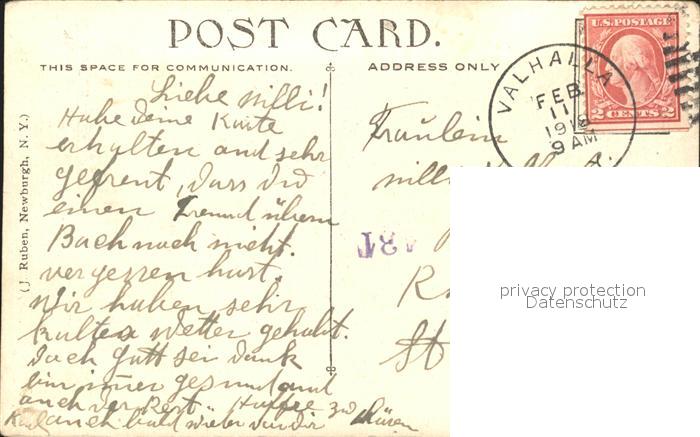 POST CARD.
THIS SPACE FOR COMMUNICATION.
ADDRESS ONLY
(J. Ruben, Newburgh, N. Y.)
Liebe Milli!
Habe Deine Karte
erhalten und sehr
gefreut, dass Du
einen Freund übern
Bach noch nicht
vergessen hast.
Wir haben sehr
kaltes Wetter gehabt.
Doch Gott sei Dank
bin immer gesund und
auch der Rest. Hoffe zu
auch bald wieder von dir hören
Karl
Fräulein
Milli
R
St
VALHALLA
FEB
11
9 AM
U.S. POSTAGE
2 CENTS 2
privacy protection
Datenschutz